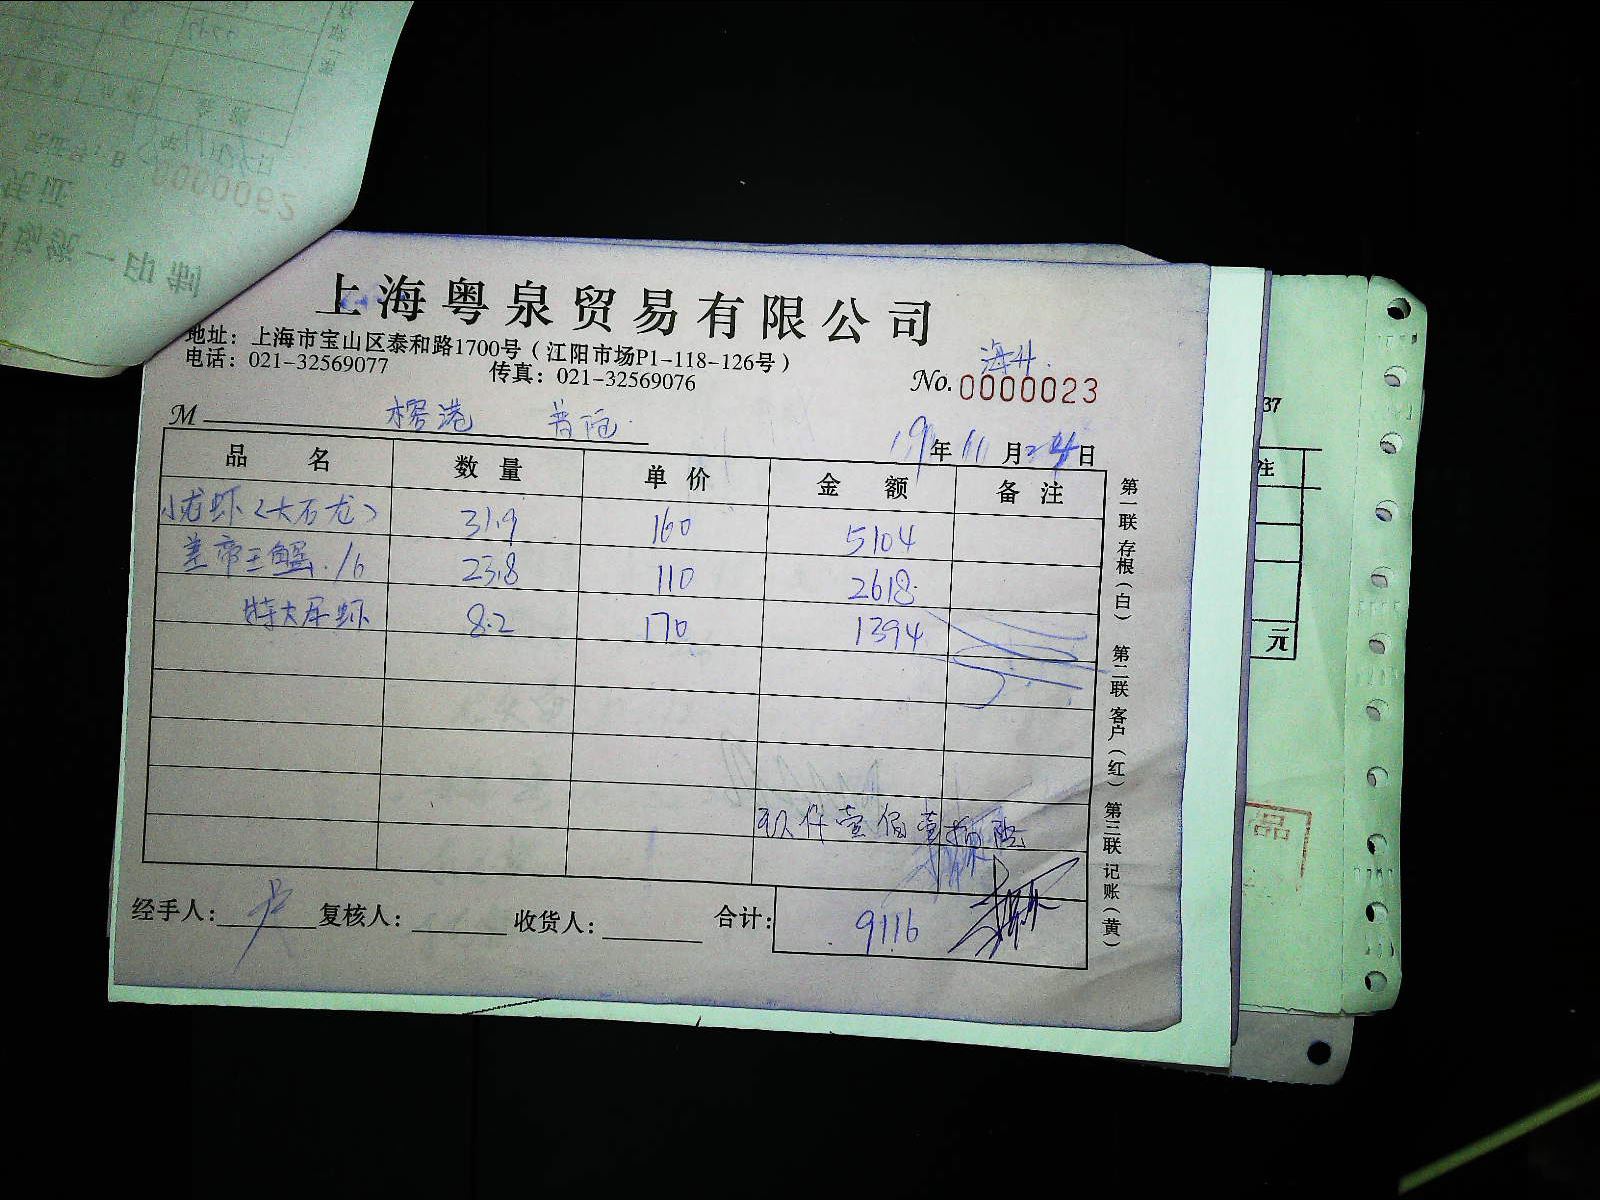 0000062
上海粤泉贸易有限公司
地址：上海市宝山区泰和路1700号（江阳市场P1-118-126号）
电话：021-32569077 传真：021-32569076
海升
No.0000023
M 榕港 普陀
19年11月24日
品名 数量 单价 金额 备注
小龙虾（大石龙） 31.9 160 5104
差帝王蟹./6 23.8 110 2618
特大 虾 8.2 170 1394
玖仟壹佰壹拾陆
经手人： 复核人： 收货人： 合计： 9116
第一联 存根（白） 第二联 客户（红） 第三联 记账（黄）
37
注
元
品